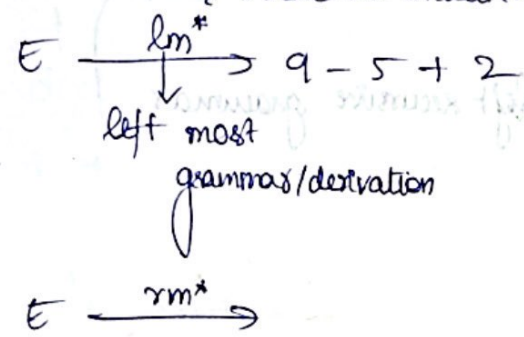 E lm* → 9 - 5 + 2
left most
grammar/derivation
E rm* →